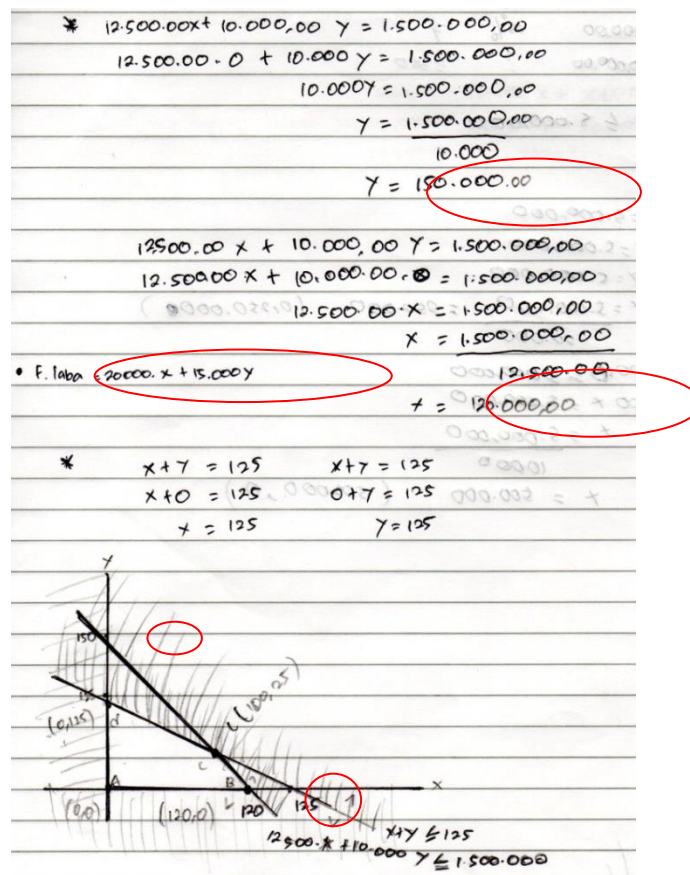 * 12.500.00x + 10.000,00 Y = 1.500.000,00
12.500.00 . 0 + 10.000 Y = 1.500.000,00
10.000Y = 1.500.000,00
Y = 1.500.000,00
10.000
Y = 150.000.00
12500.00 X + 10.000,00 Y = 1.500.000,00
12.500.00 X + 10.000.00.0 = 1.500.000,00
12.500.00.X = 1.500.000,00
X = 1.500.000,00
12.500.00
• F. laba = 20000.x + 15.000Y
x = 120.000,00
* x+Y = 125 x+Y = 125
x+0 = 125 0+Y = 125
x = 125 Y = 125
Y
150
125
(0,125)
(100,25)
C
A B X
(0,0) (120,0) 120 125
x+Y ≤ 125
12.500.x + 10.000 Y ≤ 1.500.000